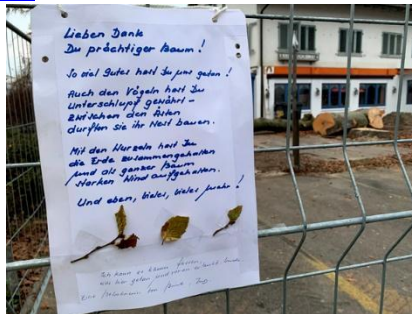 Lieben Dank
Du prächtiger Baum!
So viel Gutes hast Du uns getan!
Auch den Vögeln hast Du
Unterschlupf gewährt –
zwischen den Ästen
durften sie ihr Nest bauen.
Mit den Wurzeln hast Du
die Erde zusammengehalten
und als ganzer Baum
starken Wind aufgehalten.
Und eben, vieles, vieles mehr!
Ich kann es kaum fassen,
was hier getan
Eine